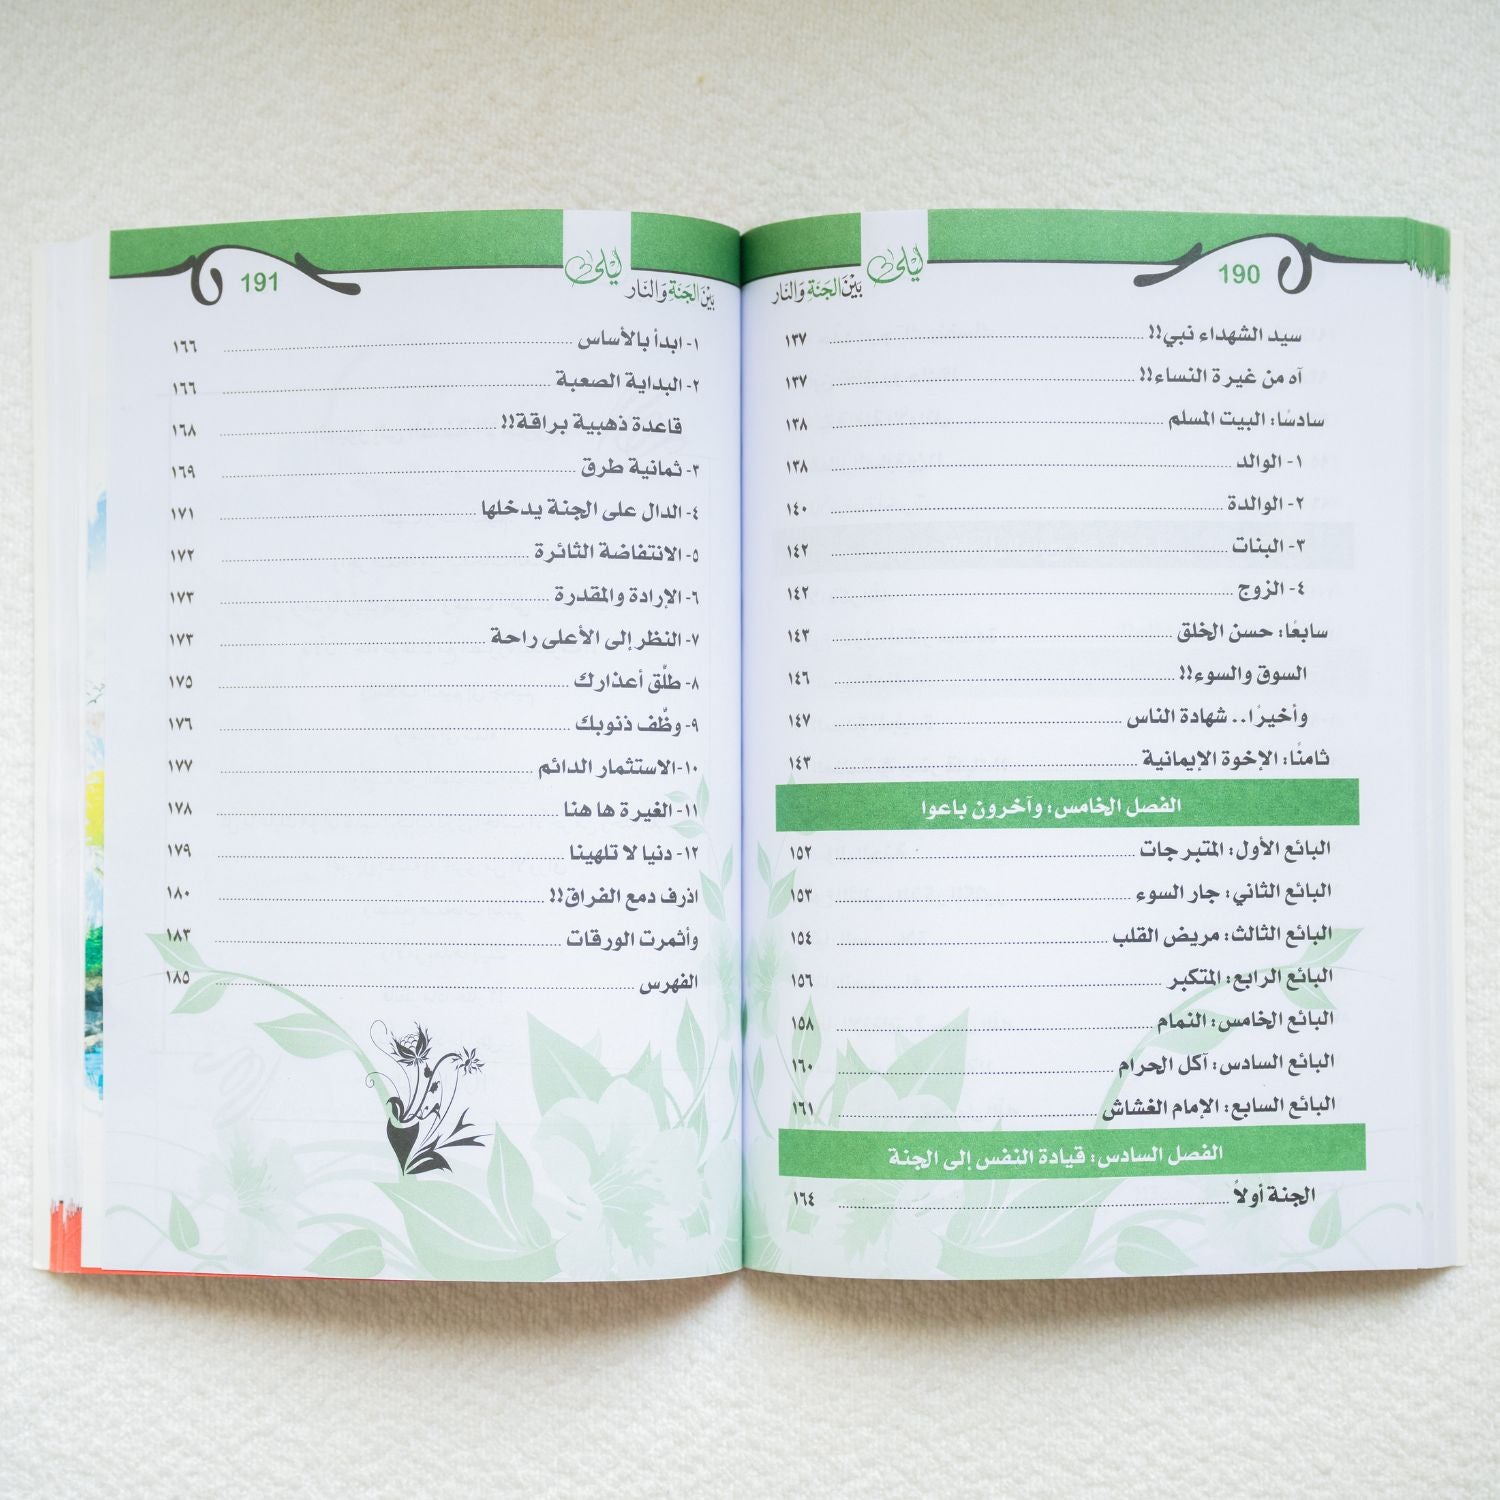 190
ليلى بين الجنة والنار
سيد الشهداء نبي!! ١٣٧
آه من غيرة النساء!! ١٣٧
سادسًا: البيت المسلم ١٣٨
١- الوالد ١٣٨
٢- الوالدة ١٤٠
٣- البنات ١٤٢
٤- الزوج ١٤٢
سابعًا: حسن الخلق ١٤٣
السوق والسوء!! ١٤٦
وأخيرًا.. شهادة الناس ١٤٧
ثامنًا: الإخوة الإيمانية ١٤٣
الفصل الخامس: وآخرون باعوا
البائع الأول: المتبرجات ١٥٢
البائع الثاني: جار السوء ١٥٣
البائع الثالث: مريض القلب ١٥٤
البائع الرابع: المتكبر ١٥٦
البائع الخامس: النمام ١٥٨
البائع السادس: آكل الحرام ١٦٠
البائع السابع: الإمام الغشاش ١٦١
الفصل السادس: قيادة النفس إلى الجنة
الجنة أولاً ١٦٤
191
ليلى بين الجنة والنار
١- ابدأ بالأساس ١٦٦
٢- البداية الصعبة ١٦٦
قاعدة ذهبية براقة!! ١٦٨
٣- ثمانية طرق ١٦٩
٤- الدال على الجنة يدخلها ١٧١
٥- الانتفاضة الثائرة ١٧٢
٦- الإرادة والمقدرة ١٧٣
٧- النظر إلى الأعلى راحة ١٧٣
٨- طلِّق أعذارك ١٧٥
٩- وظِّف ذنوبك ١٧٦
١٠- الاستثمار الدائم ١٧٧
١١- الغيرة ها هنا ١٧٨
١٢- دنيا لا تلهينا ١٧٩
اذرف دمع الفراق!! ١٨٠
وأثمرت الورقات ١٨٣
الفهرس ١٨٥